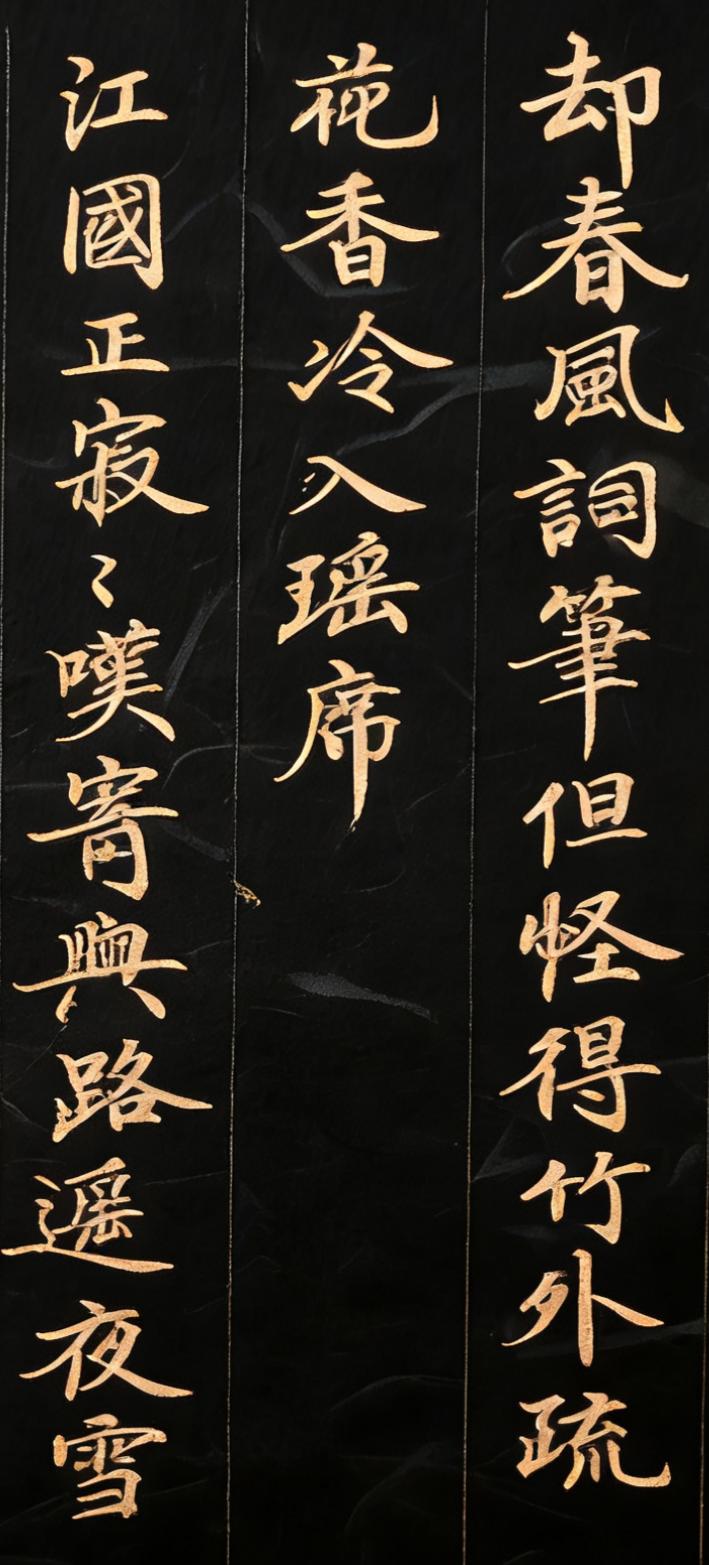 却春風詞筆但怪得竹外疏
花香冷入瑶席
江國正寂〻嘆寄與路遥夜雪